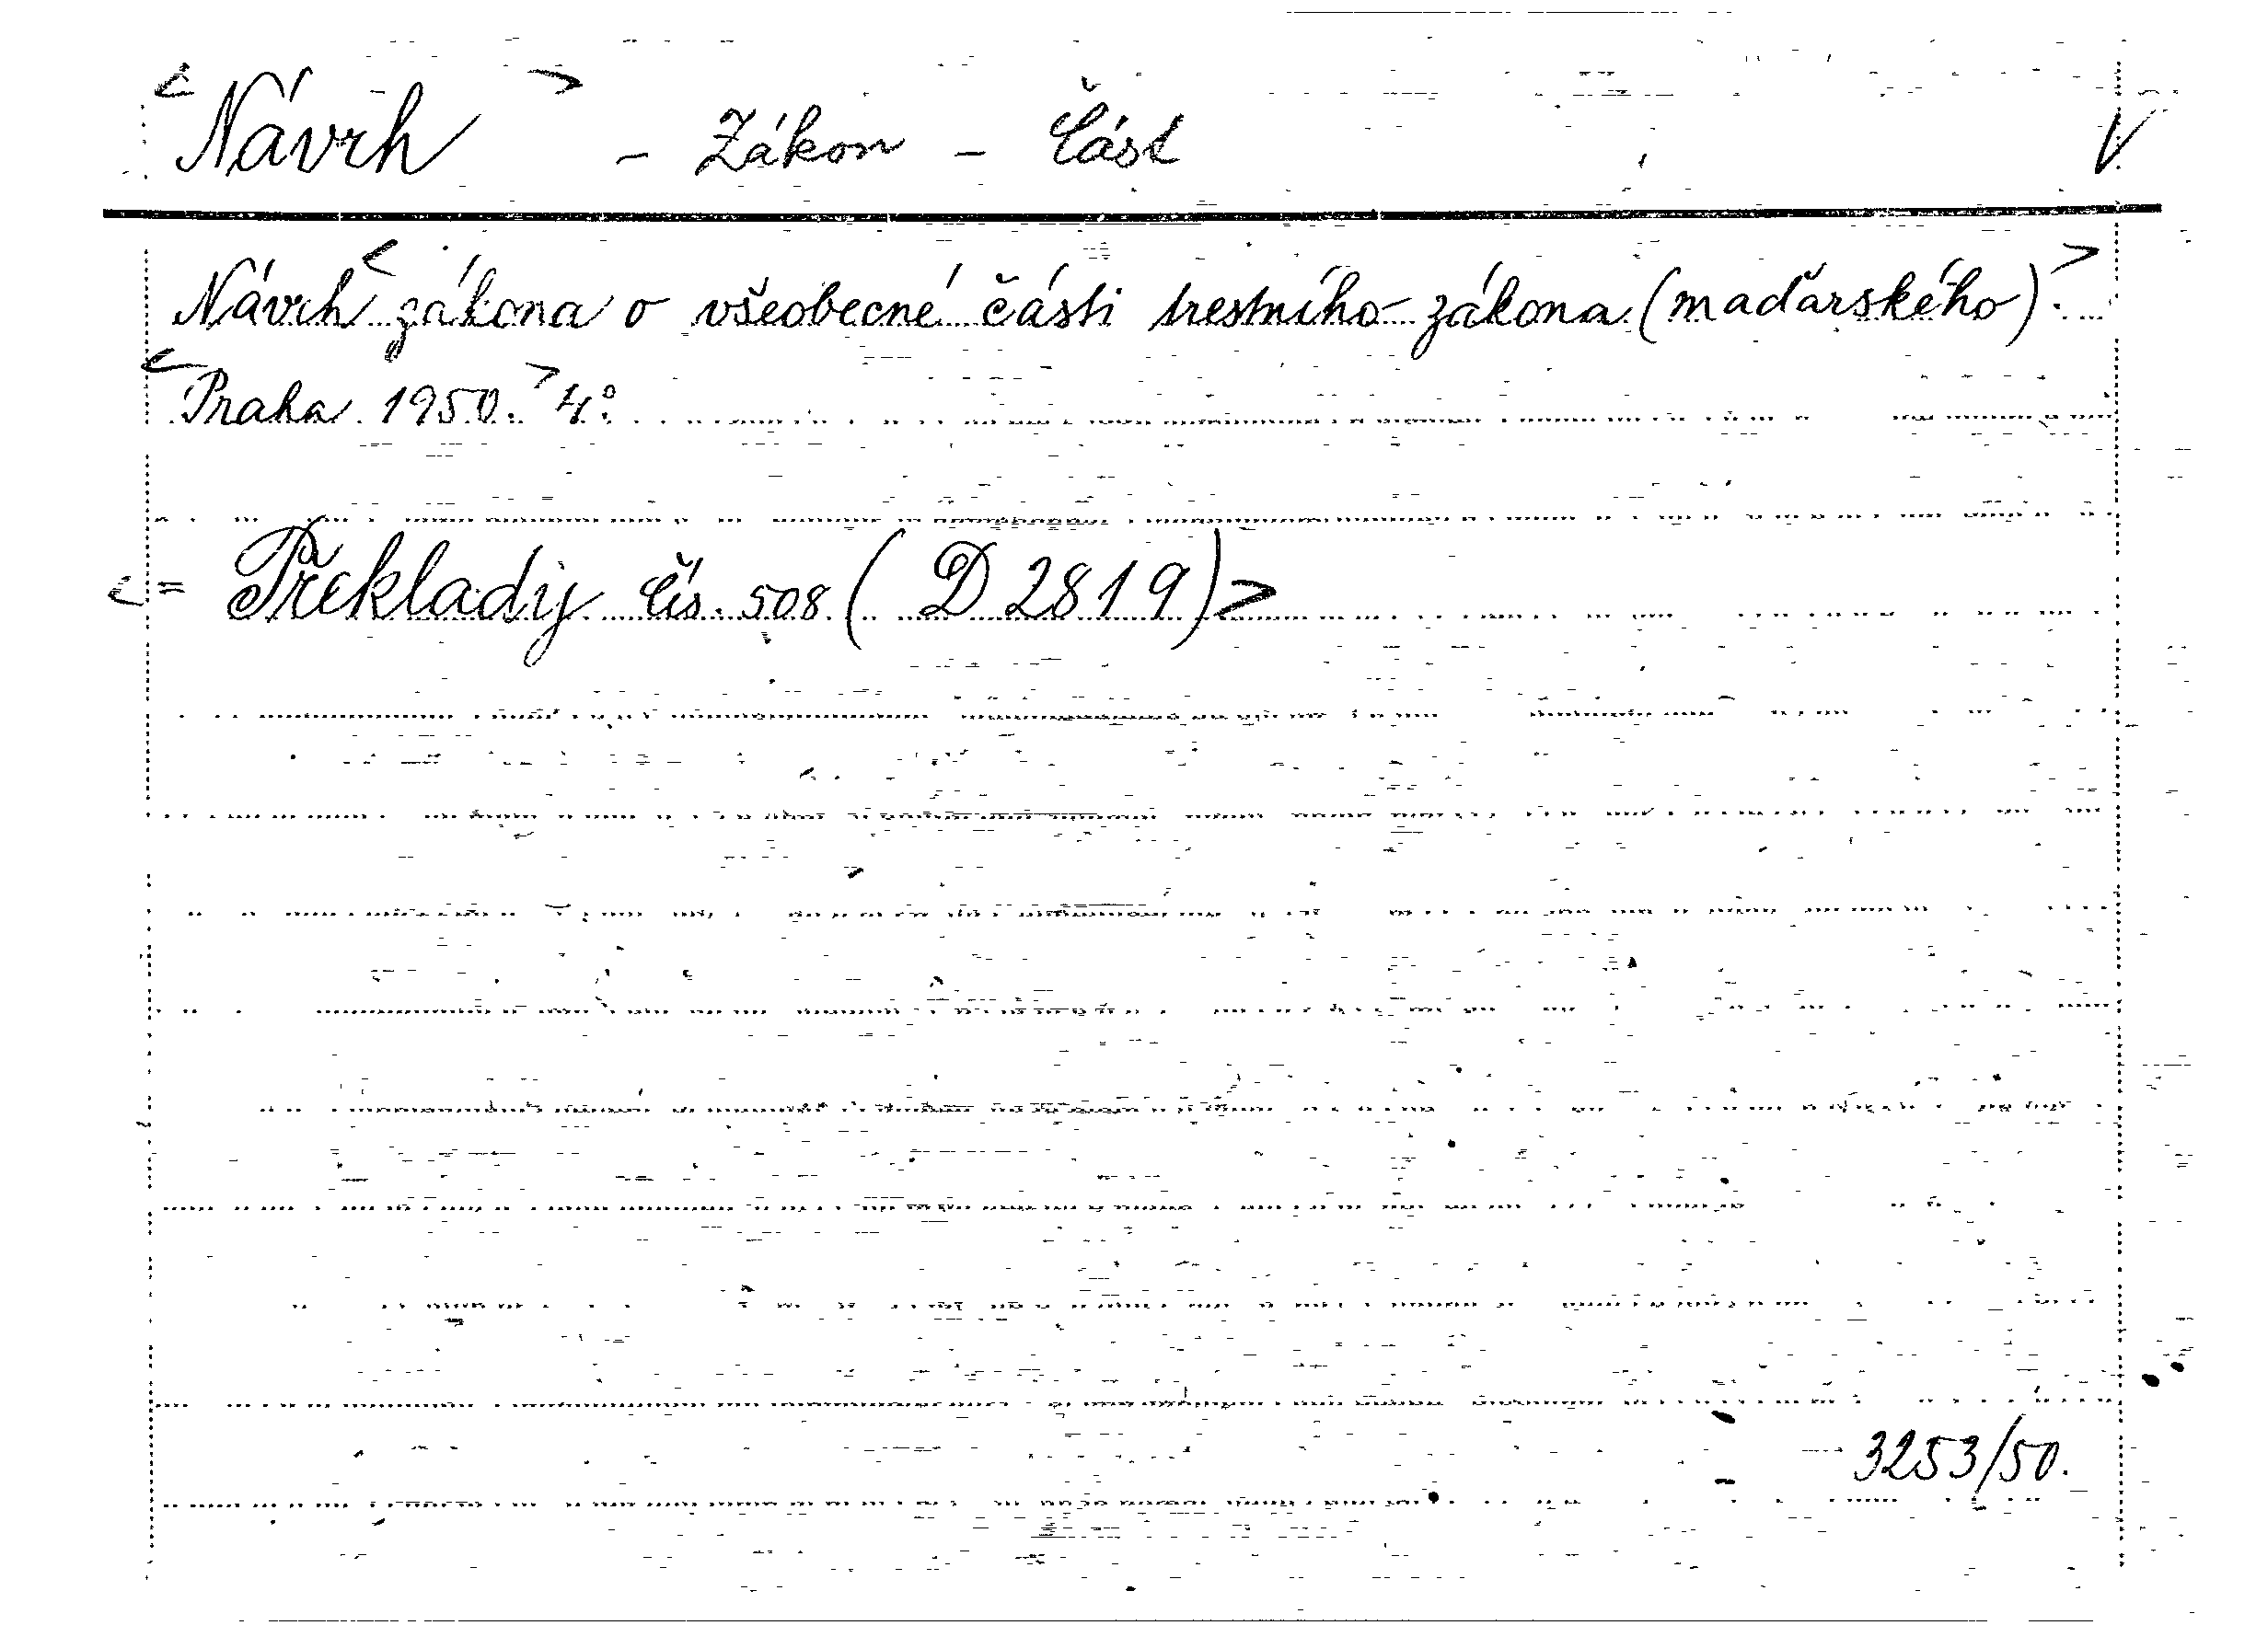 < Návrh > - Zákon - Část V
Návrh < zákona o všeobecné části trestního zákona (maďarského). >
< Praha 1950. > 4°.
< = Překlady čís. 508 ( D 2819) >
3253/50.